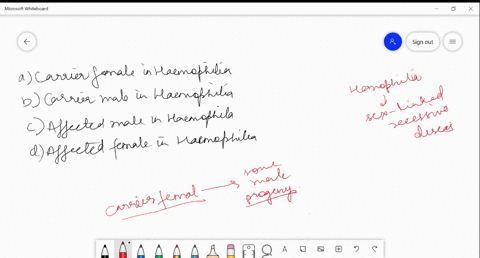 Microsoft Whiteboard
Sign out
a) Carrier female in Haemophilia
b) Carrier male in Haemophilia
c) Affected male in Haemophila
d) Affected female in Haemophilea
Hemophilia
sex-linked
recessive
diseas
Carrier femal → some
male
progeny